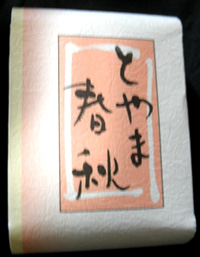 とやま
春秋